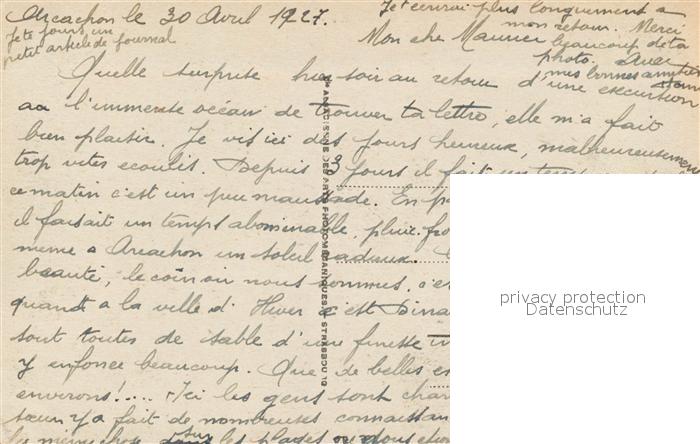 Arcachon le 30 Avril 1927.
Je t'ecrirai plus longuement a
mon retour. Merci
beaucoup de ta
photo. Avec
mes bonnes amitiés
petit article de journal
Mon che Maurice
Quelle surprise hier soir au retour d'une excurtion
au l'immense océan de trouver ta lettre, elle m'a fait
bien plaisir. Je vis ici des jours heureux, malheureusement
trop vites ecoulés. Depuis 3 jours il fait un temps
ce matin c'est un peu maussade. En
il faisait un temps abominable, pluie, fro
meme a Arcachon un soleil radieux.
beauté, le coin ou nous sommes, c'es
quand a la ville d'Hiver c'est
sont toutes de sable d'une finesse
y enfonce beaucoup. Que de belles
environs!.... Ici les gens sont char
sœur y a fait de nombreuses connaissan
la meme chose sur les plages
Sté ALSACIENNE DES ARTS PHOTOMÉCANIQUES, STRASBOURG
privacy protection
Datenschutz